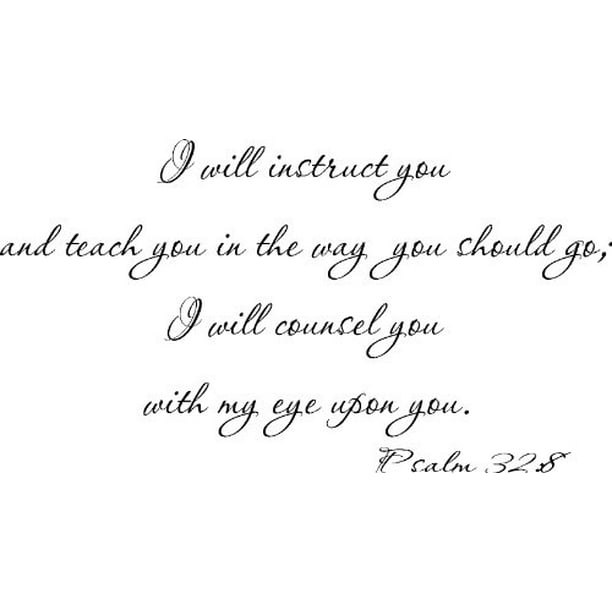 I will instruct you
and teach you in the way you should go;
I will counsel you
with my eye upon you.
Psalm 32:8